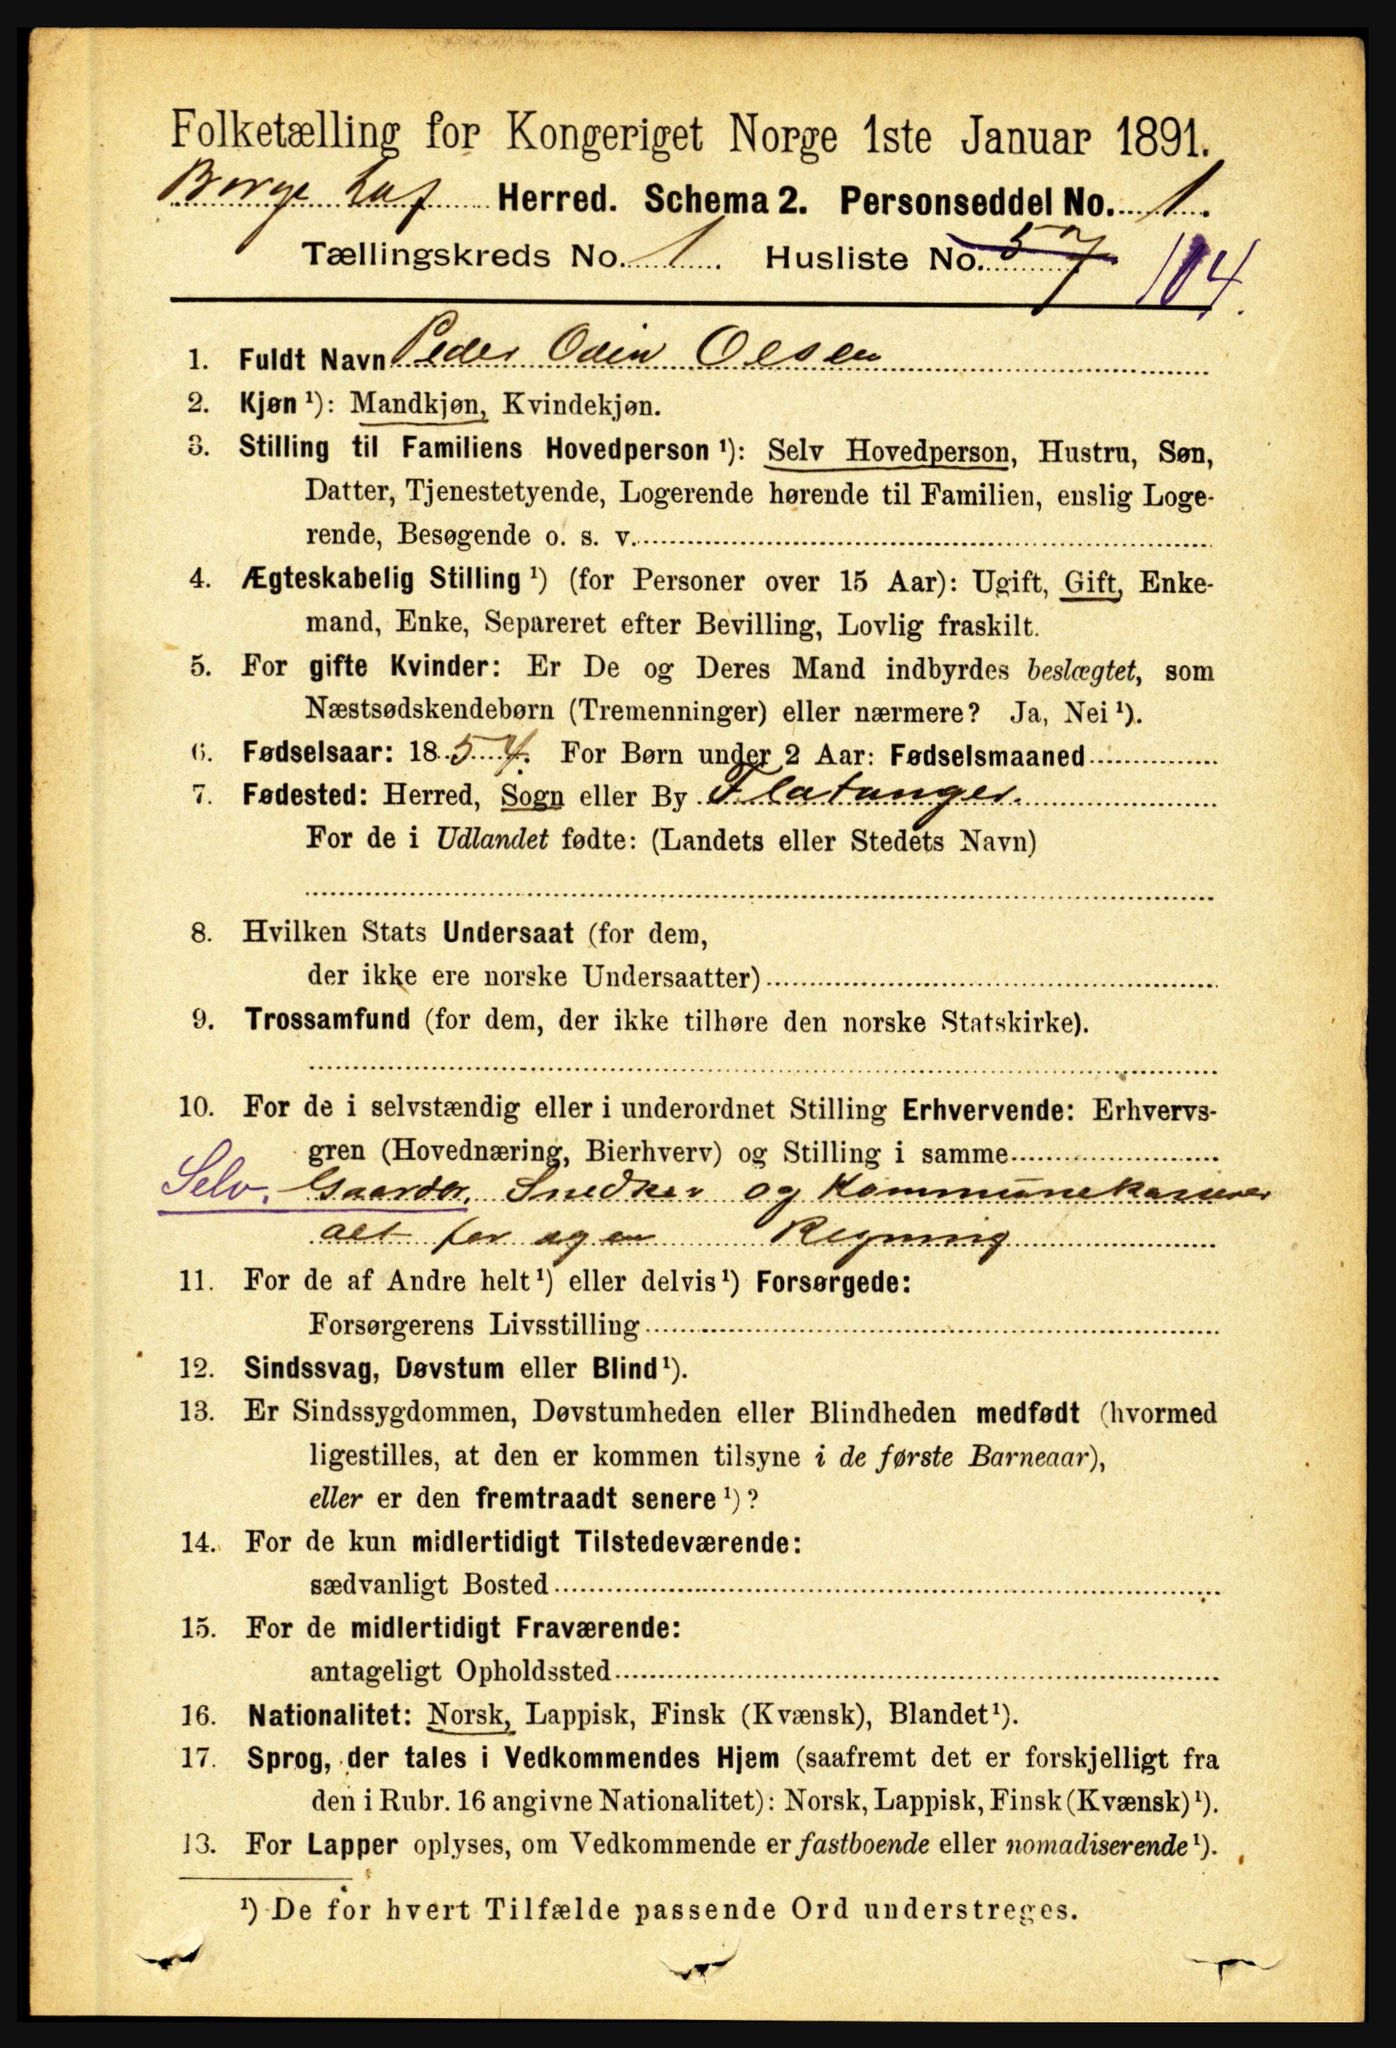 Folketælling for Kongeriget Norge 1ste Januar 1891.
Borge Lof Herred. Schema 2. Personseddel No. 1.
Tællingskreds No. 1. Husliste No. 57 104.
1. Fuldt Navn Peder Odin Olsen
2. Kjøn ¹): Mandkjøn, Kvindekjøn.
3. Stilling til Familiens Hovedperson ¹): Selv Hovedperson, Hustru, Søn,
Datter, Tjenestetyende, Logerende hørende til Familien, enslig Loge-
rende, Besøgende o. s. v.
4. Ægteskabelig Stilling ¹) (for Personer over 15 Aar): Ugift, Gift, Enke-
mand, Enke, Separeret efter Bevilling, Lovlig fraskilt.
5. For gifte Kvinder: Er De og Deres Mand indbyrdes beslægtet, som
Næstsødskendebørn (Tremenninger) eller nærmere? Ja, Nei ¹).
6. Fødselsaar: 1854. For Børn under 2 Aar: Fødselsmaaned
7. Fødested: Herred, Sogn eller By Flatanger.
For de i Udlandet fødte: (Landets eller Stedets Navn)
8. Hvilken Stats Undersaat (for dem,
der ikke ere norske Undersaatter)
9. Trossamfund (for dem, der ikke tilhøre den norske Statskirke).
10. For de i selvstændig eller i underordnet Stilling Erhvervende: Erhvervs-
gren (Hovednæring, Bierhverv) og Stilling i samme
Selv. Gaardbr. Snedker og Kommunekasserer
alt for egen Regning
11. For de af Andre helt ¹) eller delvis ¹) Forsørgede:
Forsørgerens Livsstilling
12. Sindssvag, Døvstum eller Blind ¹).
13. Er Sindssygdommen, Døvstumheden eller Blindheden medfødt (hvormed
ligestilles, at den er kommen tilsyne i de første Barneaar),
eller er den fremtraadt senere ¹)?
14. For de kun midlertidigt Tilstedeværende:
sædvanligt Bosted
15. For de midlertidigt Fraværende:
antageligt Opholdssted
16. Nationalitet: Norsk, Lappisk, Finsk (Kvænsk), Blandet ¹).
17. Sprog, der tales i Vedkommendes Hjem (saafremt det er forskjelligt fra
den i Rubr. 16 angivne Nationalitet): Norsk, Lappisk, Finsk (Kvænsk) ¹).
13. For Lapper oplyses, om Vedkommende er fastboende eller nomadiserende ¹).
¹) De for hvert Tilfælde passende Ord understreges.